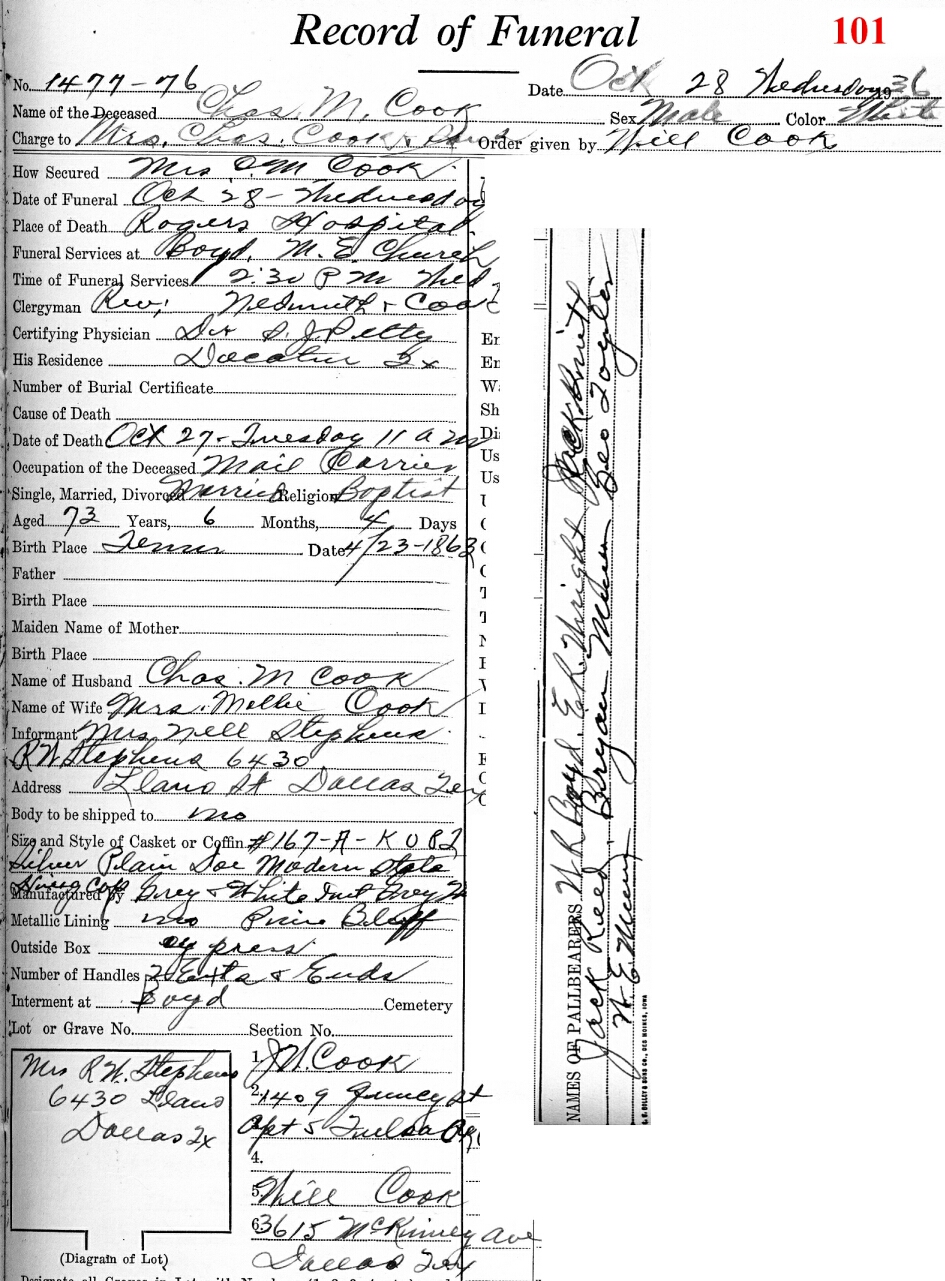 Record of Funeral
101
No. 1477-76 Date Oct 28 Wednesday 1936
Name of the Deceased Chas. M. Cook Sex Male Color White
Charge to Mrs. Chas. Cook & Sons Order given by Will Cook
How Secured Mrs C M Cook
Date of Funeral Oct 28 - Wednesday
Place of Death Rogers Hospital
Funeral Services at Boyd, M. E. Church
Time of Funeral Services 2:30 P M Wed
Clergyman Rev; & Cook
Certifying Physician Dr S. J. Petty
His Residence Decatur Tx
Number of Burial Certificate
Cause of Death
Date of Death Oct 27 - Tuesday 11 a m
Occupation of the Deceased Mail Carrier
Single, Married, Divorced Married Religion Baptist
Aged 73 Years, 6 Months, 4 Days
Birth Place Tenn Date 4/23-1863
Father
Birth Place
Maiden Name of Mother
Birth Place
Name of Husband Chas. M Cook
Name of Wife Mrs. Mollie Cook
Informant Mrs Nell Stephens
R W Stephens 6430
Address Llano St Dallas Tex
Body to be shipped to no
Size and Style of Casket or Coffin #167-A-K
Silver Plain Doe Modern State
Manufactured by Grey & White Int Grey
Metallic Lining no Pine Bluff
Outside Box cypress
Number of Handles 2 Exta & Ends
Interment at Boyd Cemetery
Lot or Grave No. Section No.
Mrs R.W. Stephens
6430 Llano
Dallas Tx
(Diagram of Lot)
1. J W Cook
2. 1409 Quincy st
3. Apt 5 Tulsa
4.
5. Will Cook
6. 3615 McKinney Ave
Dallas Tex
Er
Er
W
Sh
Di
Us
Us
NAMES OF PALLBEARERS W R Boyd, E R. Wright Jack Smith
Jack Reed, Bryan Geo Taylor
W. E.